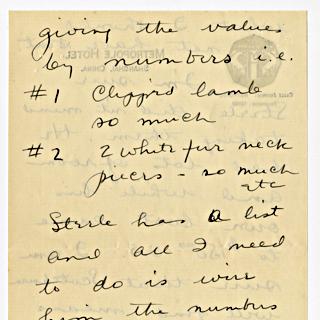 giving the values
by numbers i.e.
#1 Clipped lamb
so much
#2 2 white fur neck
pieces - so much
etc
Steele has a list
and all I need
to do is wire
him the numbers
METROPOLE HOTEL
SHANGHAI, CHINA.